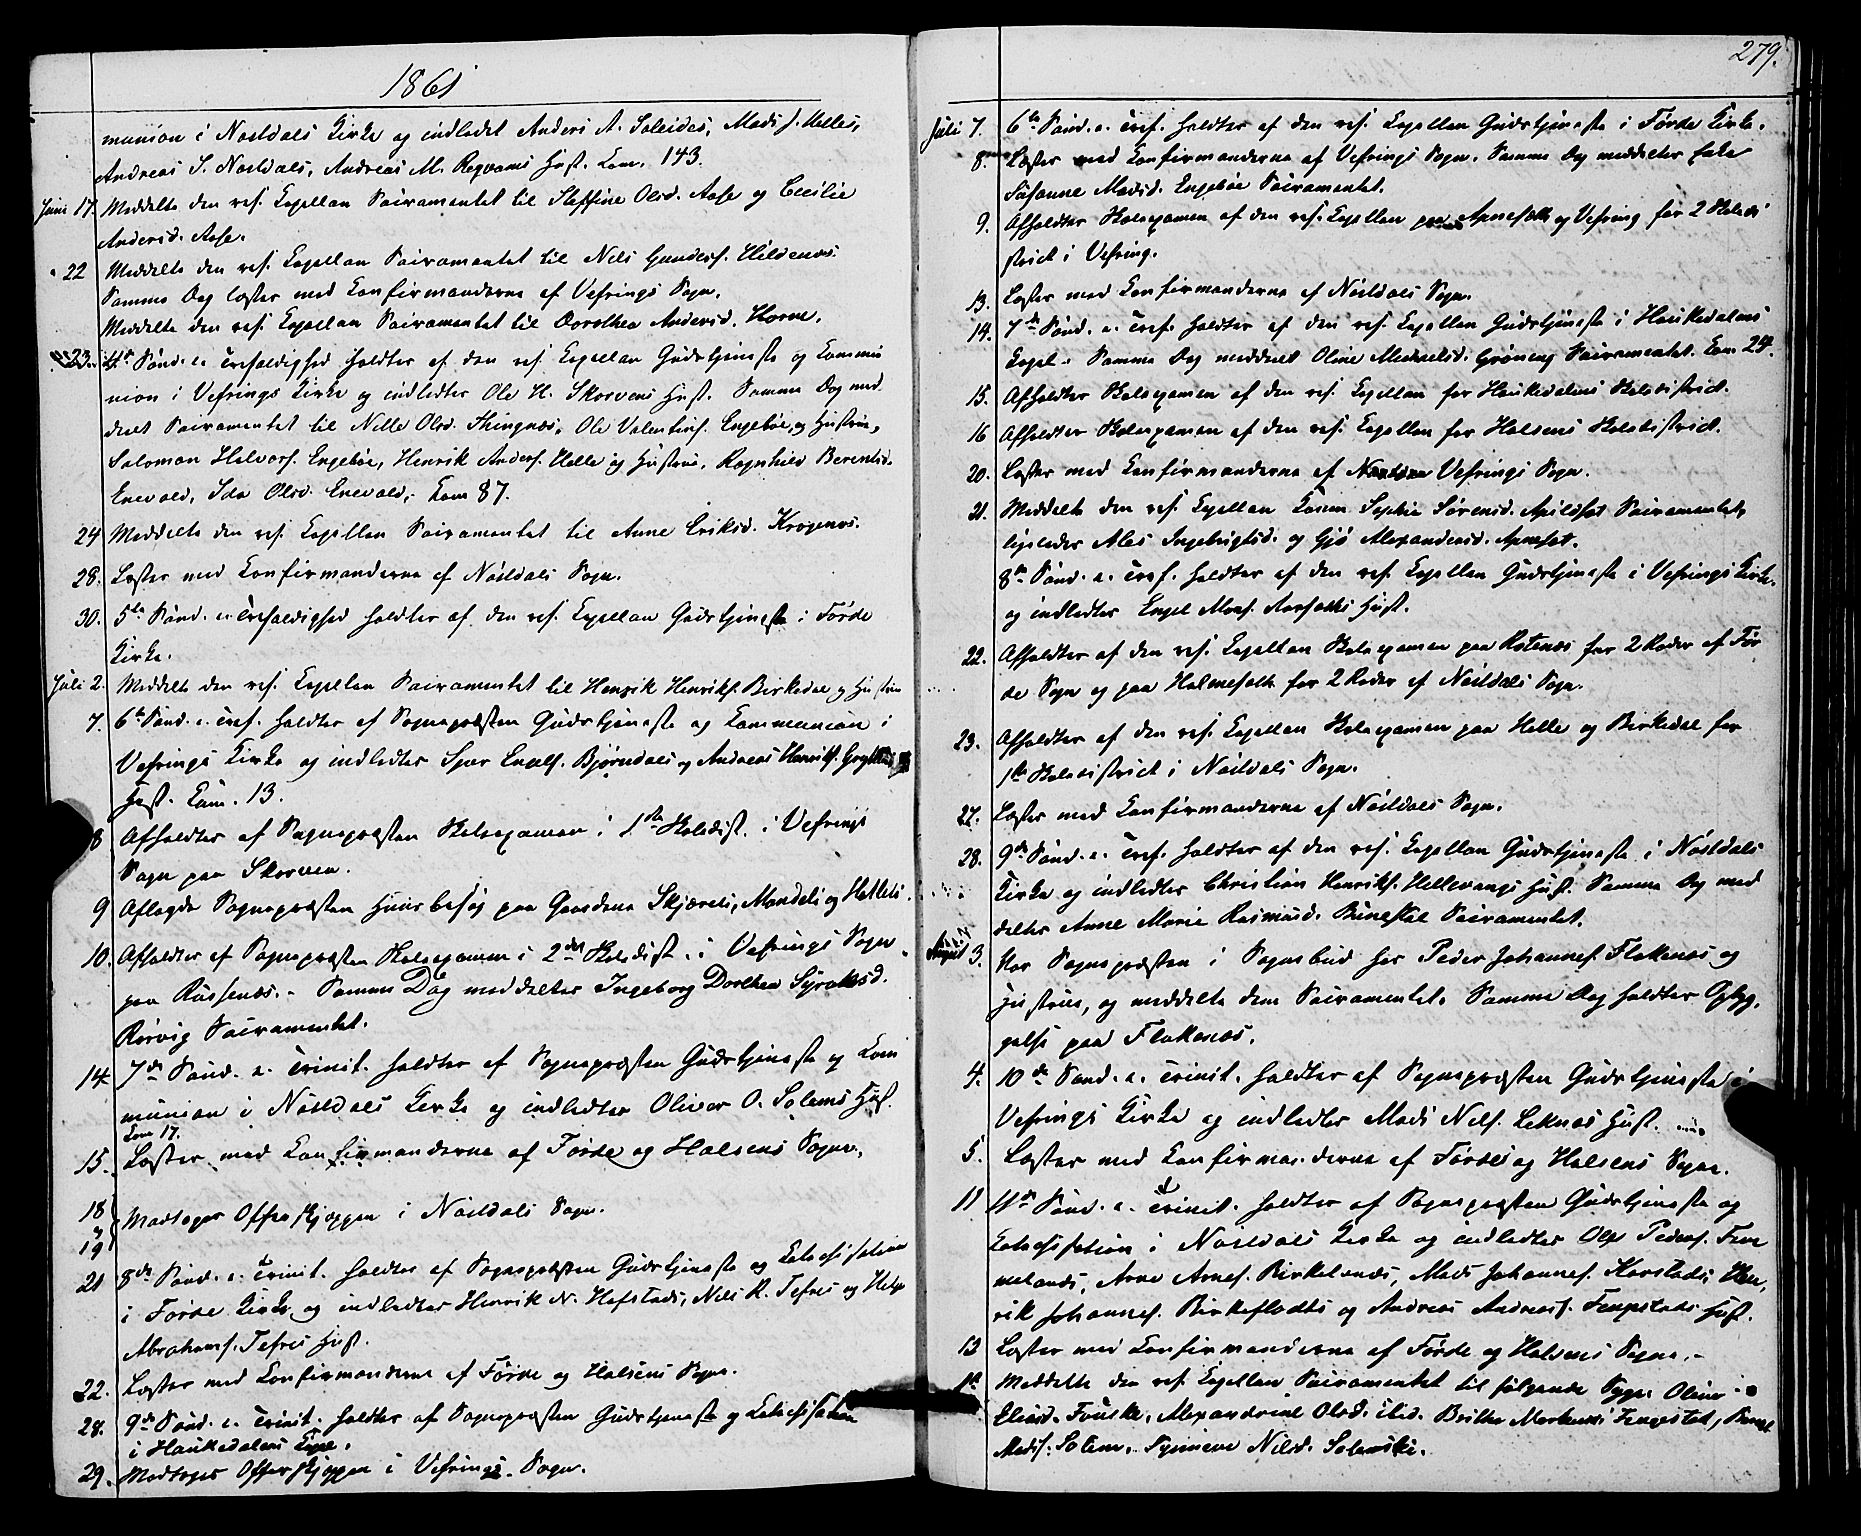 1861
munion i Nøstdals Kirke og indledet Anders A. Soleides, Mads J. Helles,
Andreas S. Nøstdals, Andreas M. Regvams Hust. Kom. 143.
Juni 17. Meddelte den res. Capellan Sacramentet til Steffine Olsd. Aase og Cecilie
Andersd. Aase.
" 22 Meddelte den res. Capellan Sacramentet til Nils Gunders. Hildenæs.
Samme Dag læstes med Confirmanderne af Vefrings Sogn.
Meddelte den res. Capellan Sacramentet til Dorothea Andersd. Horne.
23. 4de Sønd. e. Trefoldighed holdtes af den res. Capellan Gudstjeneste og Commu
nion i Vefrings Kirke og indledtes Ole H. Skorvens Hust. Samme Dag med
delt Sacramentet til Nille Olsd. Thingnæs, Ole Valentins. Engebøe og Hustrue,
Salomon Halvors. Engebøe, Henrik Anders. Helle og Hustrue, Ragnhild Berentsd.
Enevald, Ida Olsd. Enevald. Kom 87.
24 Meddelte den res. Capellan Sacramentet til Anne Eriksd. Krogenæs.
28. Læstes med Confirmanderne af Nøstdals Sogn.
30. 5te Sønd. e. Trefoldighed holdtes af den res. Capellan Gudstjeneste i Førde
Kirke.
Juli 2. Meddelte den res. Capellan Sacramentet til Henrik Henriks. Birkedal og Hustrue
7. 6te Sønd. e. Tref. holdtes af Sognepræsten Gudstjeneste og Communion i
Vefrings Kirke og indledtes Sjur Enols. Bjørndals og Andreas Henriks.
Hust. Kom. 13.
8 Afholdtes af Sognepræsten Skoleexamen i 1ste Skoledist. i Vefrings
Sogn paa Skorven.
9 Aflagde Sognepræsten Huusbesøg paa Gaardene Skjærels, Mandels og Hetlels.
10. Afholdtes af Sognepræsten Skoleexamen i 2det Skoledist. i Vefrings Sogn
paa Russenæs. - Samme Dag meddeltes Ingeborg Dorthea Syraksd.
Rørvig Sacramentet.
14. 7de Sønd. e. Trinit. holdtes af Sognepræsten Gudstjeneste og Com
munion i Nøstdals Kirke og indledtes Oliver O. Solems Hust.
Kom 17.
15. Læstes med Confirmanderne af Førde og Holsens Sogne.
18 og 19 Modtoges Offer Skjeppen i Nøstdals Sogn.
21 8de Sønd. e. Trinit. holdtes af Sognepræsten Gudstjeneste og Catechisation
i Førde Kirke, og indledtes Henrik N. Hafstads, Nils R. Tefres og Helge
Abrahams. Tefres Hust.
22. Læstes med Confirmanderne af Førde og Holsens Sogne.
28. 9de Sønd. e. Trinit. holdtes af Sognepræsten Gudstjeneste og Catechisation
i Haukedalens Capel.
29. Modtoges Offer Skjeppen i Vefrings Sogn.
279.
Juli 7. 6te Sønd. e. Tref. holdtes af den res. Capellan Gudstjeneste i Førde Kirke.
8. Læstes med Confirmanderne af Vefrings Sogn. Samme Dag meddeltes
Susanne Madsd. Engebøe Sacramentet.
9. Afholdtes Skoleexamen af den res. Capellan paa og Vefring for 2 Skoledi
strict i Vefring.
13. Læstes med Confirmanderne af Nøstdals Sogn.
14. 7de Sønd. e. Tref. holdtes af den res. Capellan Gudstjeneste i Haukedalens
Capel. Samme Dag meddelt Oline Mikkelsd. Grøning Sacramentet. Kom 24.
15. Afholdtes Skoleexamen af den res. Capellan for Haukedalens Skoledistrict.
16 Afholdtes Skoleexamen af den res. Capellan for Holsens Skoledistrict.
20. Læstes med Confirmanderne af Vefrings Sogn.
21. Meddelte den res. Capellan Karen Sophie Sørensd. Sacramentet,
ligeledes Ales Ingebrigtsd. og Gjø Alexandersd.
8de Sønd. e. Tref. holdtes af den res. Capellan Gudstjeneste i Vefrings Kirke.
og indledtes Engel Mons. Hust.
22. Afholdtes af den res. Capellan Skoleexamen paa Rotenæs for 2 Roder af Før
de Sogn og paa Holmesæth for 2 Roder af Nøstdals Sogn.
23. Afholdtes af den res. Capellan Skoleexamen paa Helle og Birkedal for
1ste Skoledistrict i Nøstdals Sogn.
27. Læstes med Confirmanderne af Nøstdals Sogn.
28. 9de Sønd. e. Tref. holdtes af den res. Capellan Gudstjeneste i Nøstdals
Kirke og indledtes Christian Henriks. Hellevangs Hust. Samme Dag med
deltes Anne Marie Rasmusd. Bunestie Sacramentet.
August 3. Var Sognepræsten i Sognebud hos Peder Johannes. Flokenæs og
Hustrue, og meddelte dem Sacramentet. Samme Dag holdtes Opbyg,
gelse paa Flokenæs.
4. 10de Sønd. e. Trinit. holdtes af Sognepræsten Gudstjeneste i
Vefrings Kirke og indledtes Mads Nils. Leknæs Hust.
5. Læstes med Confirmanderne af Førde og Holsens Sogne.
11 11te Sønd. e. Trinit. holdtes af Sognepræsten Gudstjeneste og
Catechisation i Nøstdals Kirke og indledtes Ole Peders. Fim
melands, Arne Arnes. Birkelands, Mads Johannes. Karstads, Hen,
rik Johannes. Birkeflodts og Andreas Andreas. Hust.
13 Læstes med Confirmanderne af Førde og Holsens Sogne. -
14 Meddelte den res. Capellan Sacramentet til følgende Syge: Oline
Eliasd. Fouske, Alexandrine Olsd. ibid. Brithe Markusd. Fengestad,
Mads. Solem. Synneve Nilsd. Solemslie.